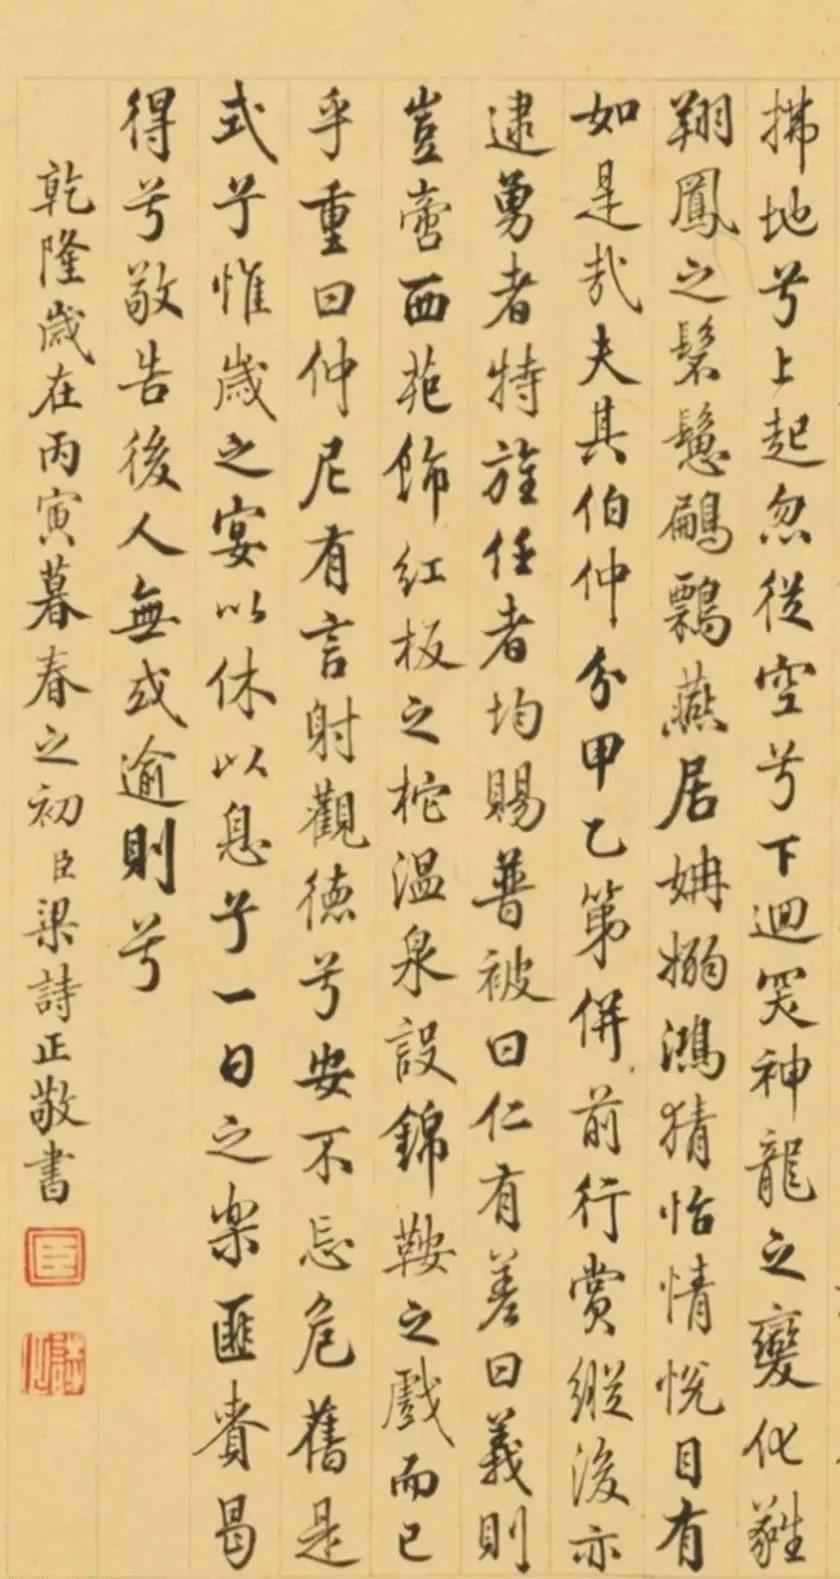 拂地兮上起忽從空兮下迴冥神龍之變化離
翔鳳之髬鬆鷫鸘燕居姌搦鴻猜怡情悅目有
如是哉夫其伯仲分甲乙第併前行賞縱後亦
逮勇者特旌任者均賜普被曰仁有差曰義則
豈啻西苑飾紅板之柁溫泉設錦鞍之戲而已
乎重曰仲尼有言射觀德兮安不忘危舊是
式兮惟歲之宴以休以息兮一日之樂匪貴曷
得兮敬告後人無或逾則兮
乾隆歲在丙寅暮春之初臣梁詩正敬書
臣